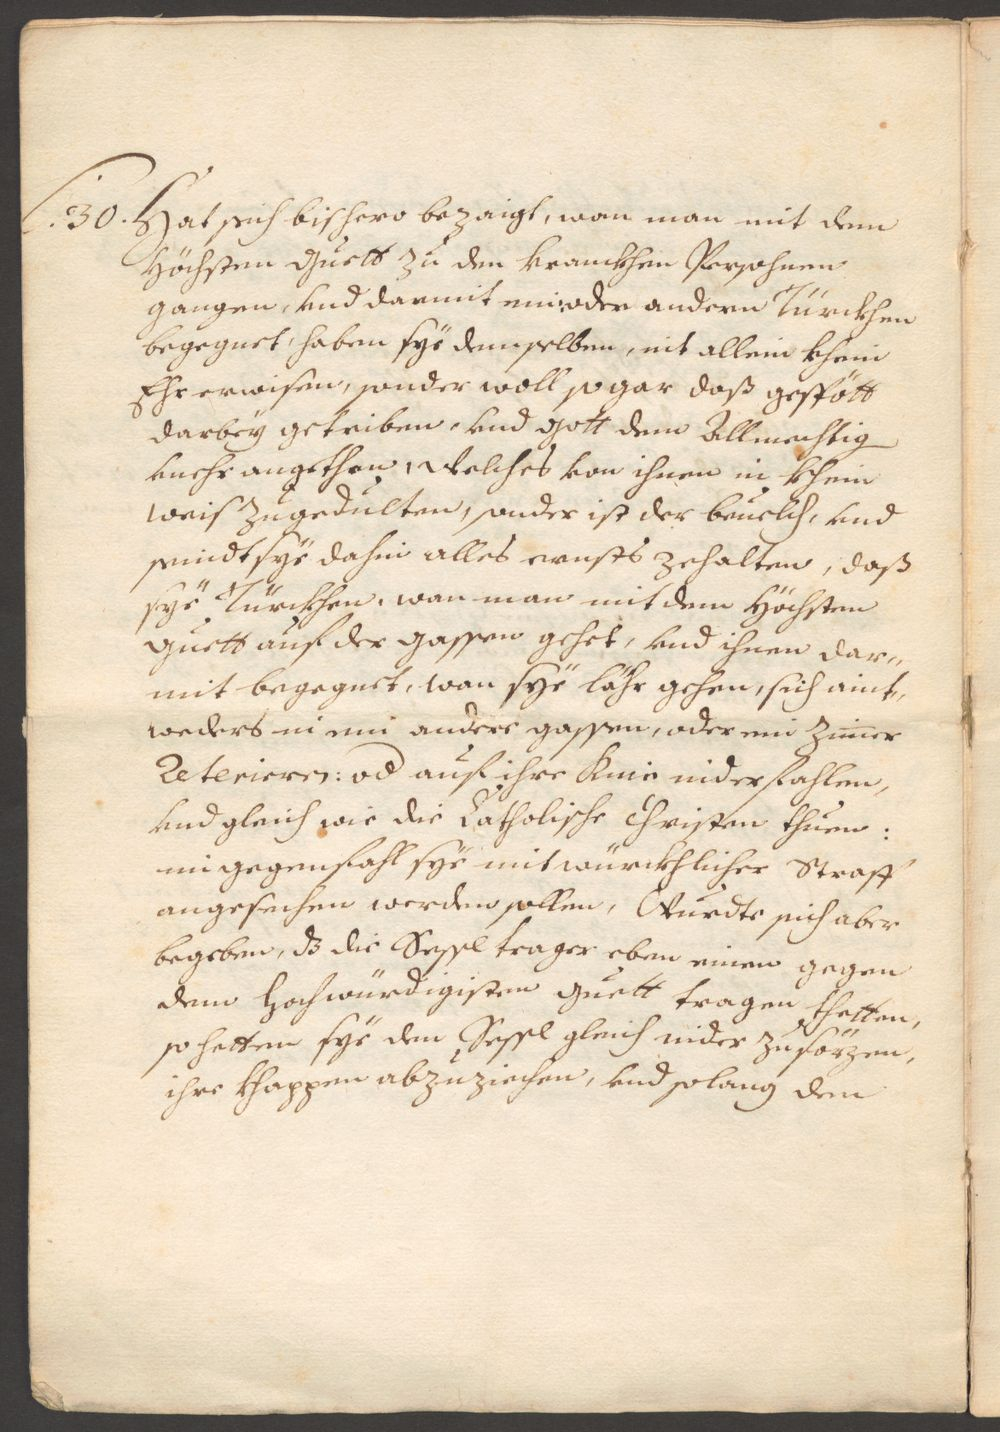 30. Hat sich bishero bezaigt, wan man mit dem
Höchsten Guett zu den kranckhen Persohnen
gangen, vnd darmit ein: oder andern Türckhen
begegnet, haben sye demselben, nit allein khein
Ehr erwisen, sonder woll so gar daß gespött
darbey getriben, vnd Gott dem Allmechtig
vnehr angethan, Welches von ihnen in khein
weis zugedulten, sonder ist der beuelch, vnd
seindt sye dahin alles ernsts zehalten, daß
sye Türckhen, wan man mit dem Höchsten
Guett auf der gassen gehet, vnd ihnen dar„
mit begegnet, wan sye lähr gehen, sich aint„
weders in ein andere gassen, oder ein Zimer
Reterieren: od auf ihre Knie niderfahlen,
vnd gleich wie die Catholische Christen thuen:
in gegenfahl sye mit würckhlicher Straff
angesechen werden sollen, Wurdte sich aber
begeben, dz die Sessltrager eben einen gegen
dem Hochwürdigisten Guett tragen thetten,
so hetten sye den Sessl gleich nider zusözen,
ihre Khappen abzuziechen, vnd solang dem